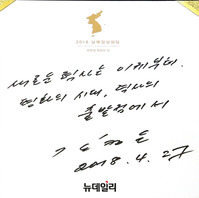 2018 남북정상회담
새로운 력사는 이제부터.
평화의 시대, 력사의
출발점에서
김정은
2018. 4. 27
뉴데일리